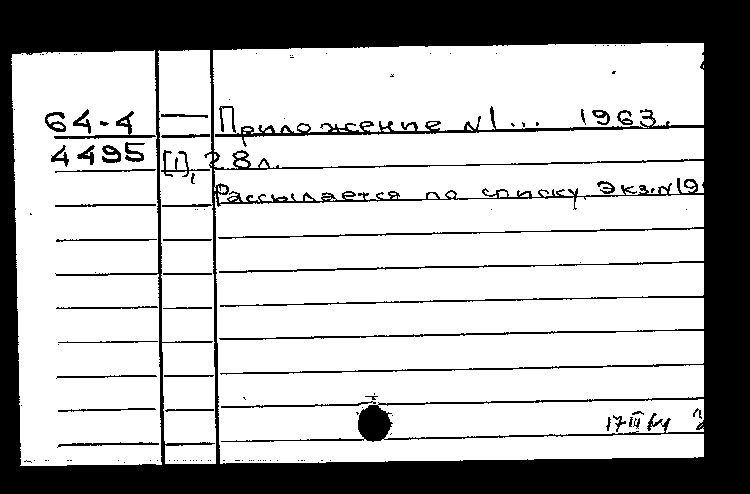 64-4 — Приложение N1... 1963.
4495 [1], 28 л.
Рассылается по списку. Экз. N19
17 III 64